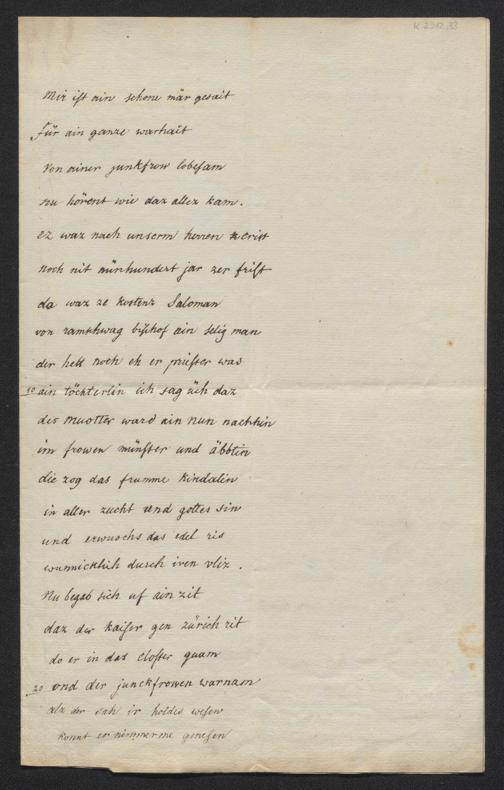 K 2912,33
Mir ist ain schone mär gesait
Für ain ganze warhait
Von ainer junkfrow lobesam
nu hörent wie daz allez kam.
ez waz nach unserm herren crist
noch nit nünhundert jar zer frist
da waz ze kostenz Saloman
von ramschwag bischof ain selig man
der hett noch eh er priester was
10 ain töchterlin ich sag üch daz
der muotter ward ain nun nachhin
im frowen münster und äbbtin
die zog das frumme kindalin
in aller zucht und gottes sin
und erwuochs das edel ris
wunnicklich durch iren vliz.
Nu begab sich uf ain zit
daz der kaiser gen zürich rit
do er in das closter quam
20 und der junckfrowen warnam
alz der sah ir holdes wesen
konnt er nimmerme genesen